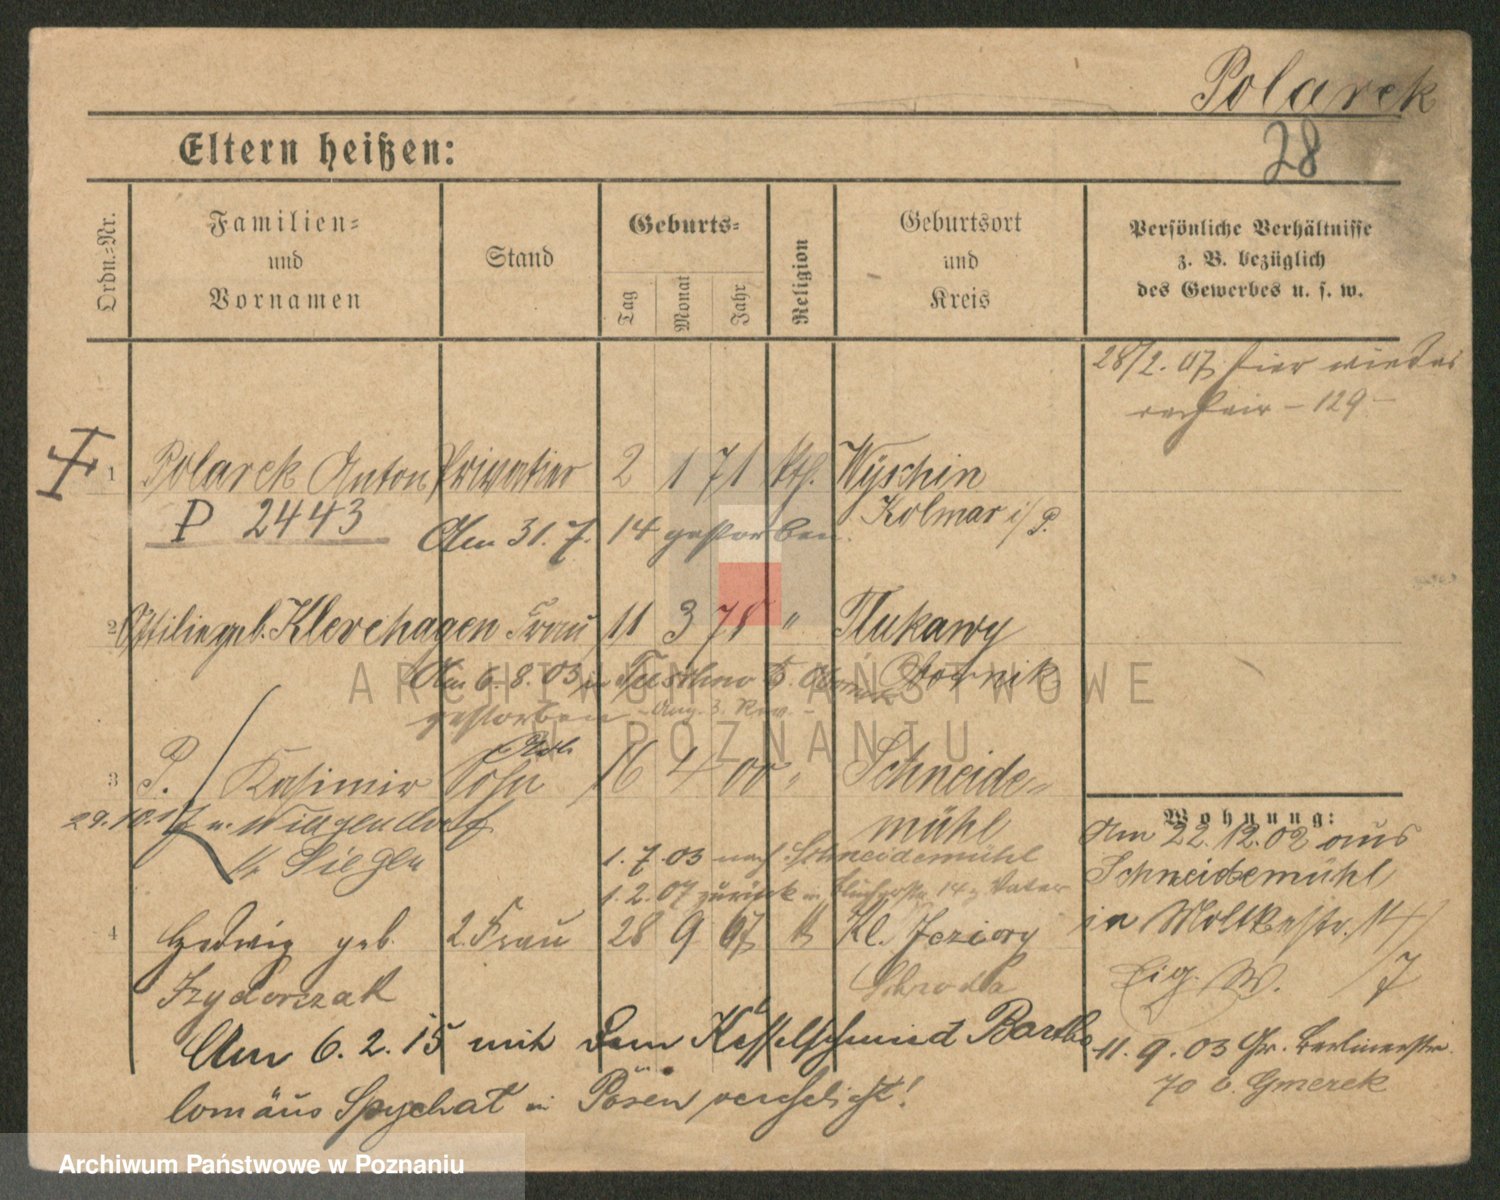 Polarek
28
Eltern heißen:
Ordn.-Nr.
Familien-
und
Vornamen
Stand
Geburts-
Tag
Monat
Jahr
Religion
Geburtsort
und
Kreis
Persönliche Verhältnisse
z. B. bezüglich
des Gewerbes u. s. w.
28/2. 07 hier wieder
129
1 Polarek Anton Privatier 2 1 71 kth. Wyschin
Kolmar i/P.
P 2443
Am 31. 7. 14 gestorben.
2 Ottilie geb. Klevehagen Frau 11 3 78 " Tlukawy
Obornik
Am 6. 8. 03 in
gestorben
3 P. Kasimir Sohn 16 4 00 " Schneide-
mühl
29. 10. 17 n.
1. 7. 03 nach Schneidemühl
1. 2. 07 zurück 14 z. Vater
4 Hedwig geb. 2. Frau 28 9 67 k Kl. Jeziory
Schroda
Szydorczak
Am 6. 2. 15 mit dem Kesselschmied Bartho
lomäus Spychat in Posen verehelicht!
Wohnung:
Am 22. 12. 02 aus
Schneidemühl
in Moltkestr. 14/
Eig. W. 7
11. 9. 03 Gr. Berlinerstr.
70 b. Gmerek
ARCHIWUM PAŃSTWOWE
W POZNANIU
Archiwum Państwowe w Poznaniu